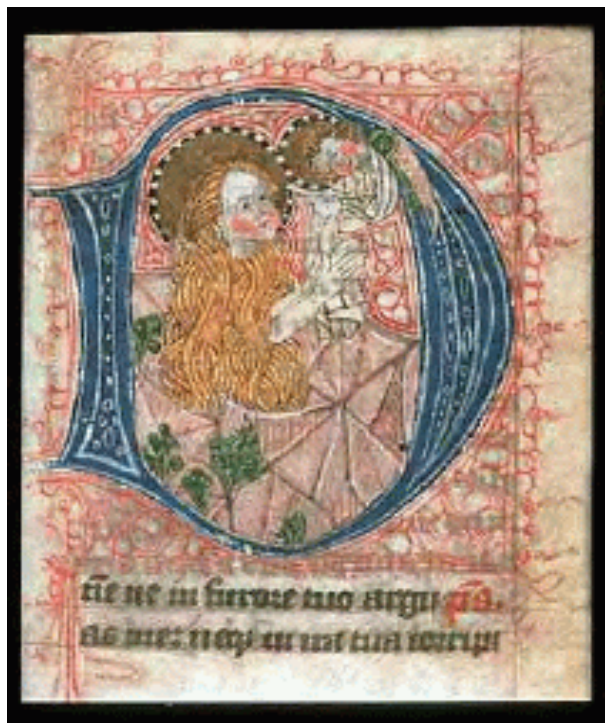 Dn̄e ne in furore tuo argu p̄s.
as me: neqꝫ in ira tua corripi